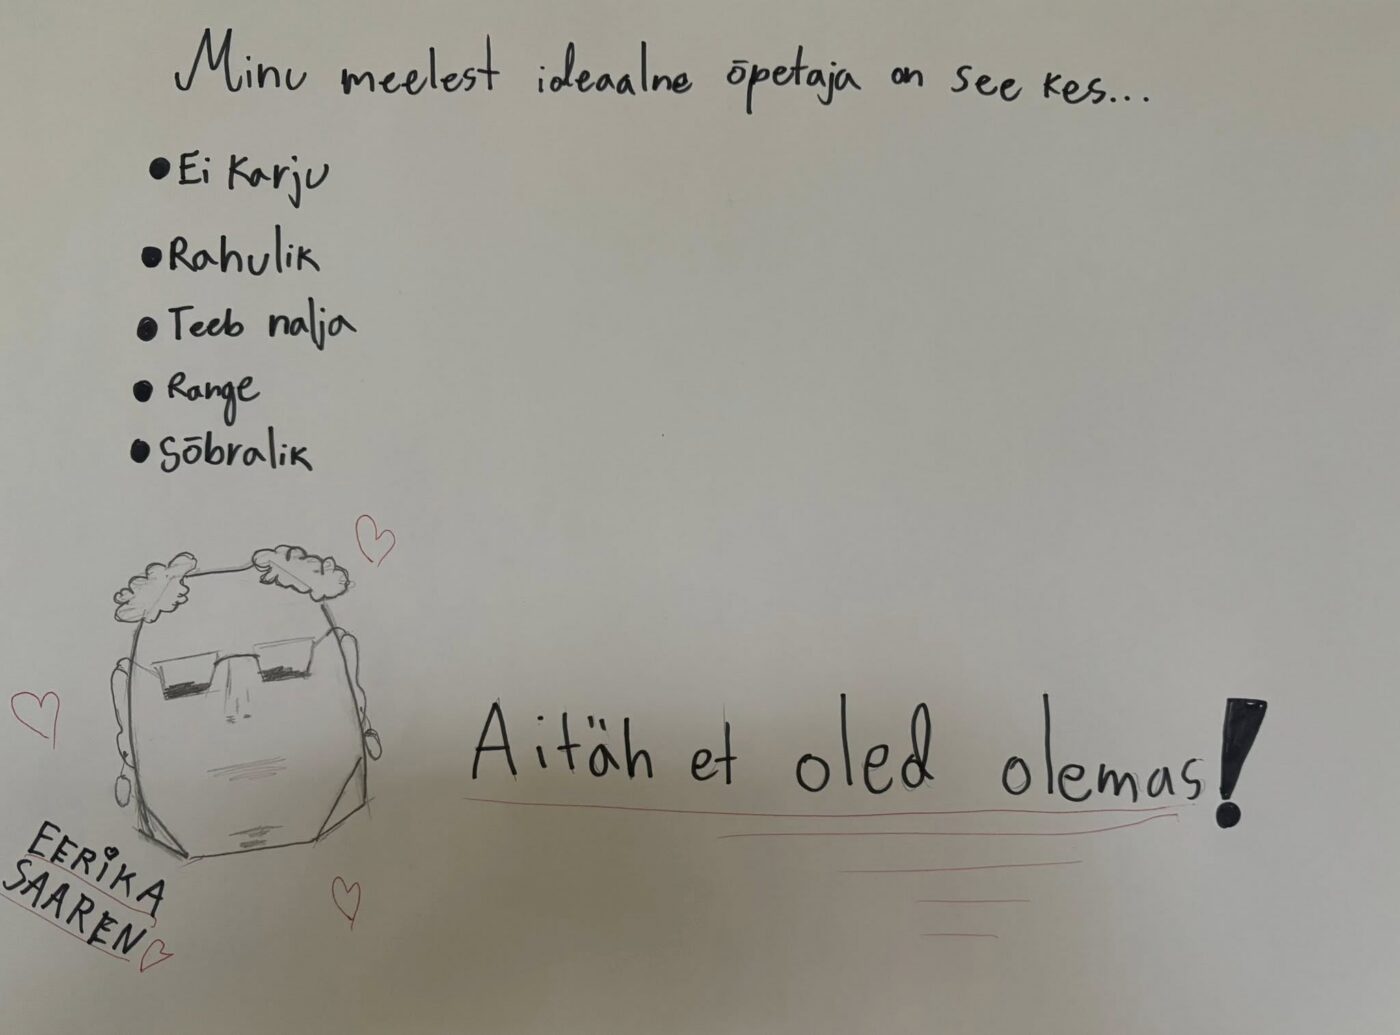 Minu meelest ideaalne õpetaja on see kes...
• Ei karju
• Rahulik
• Teeb nalja
• Range
• Sõbralik
Aitäh et oled olemas!
EERIKA
SAAREN